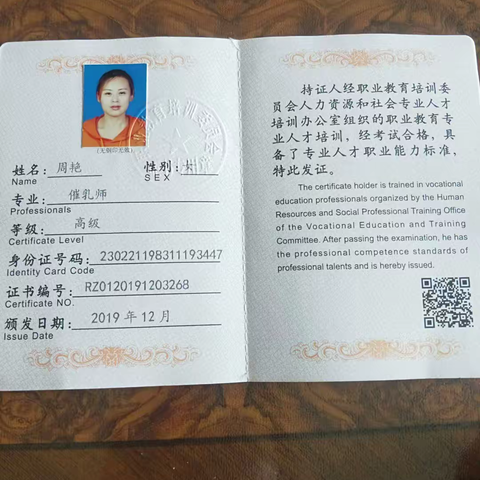 (无钢印无效)
姓名: 周艳 性别: 女
Name SEX
专业: 催乳师
Professionals
等级: 高级
Certificate Level
身份证号码: 230221198311193447
Identity Card Code
证书编号: RZ0120191203268
Certificate NO.
颁发日期: 2019 年 12 月
Issue Date
持证人经职业教育培训委
员会人力资源和社会专业人才
培训办公室组织的职业教育专
业人才培训,经考试合格,具
备了专业人才职业能力标准,
特此发证。
The certificate holder is trained in vocational
education professionals organized by the Human
Resources and Social Professional Training Office
of the Vocational Education and Training
Committee. After passing the examination, he has
the professional competence standards of
professional talents and is hereby issued.